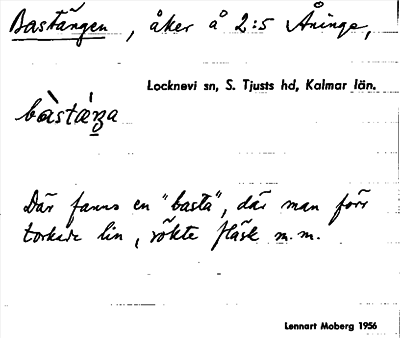 Bastängen, åker å 2:5 Åninge,
Locknevi sn, S. Tjusts hd, Kalmar län.
Där fanns en "basta", där man förr
torkade lin, rökte fläsk m.m.
Lennart Moberg 1956